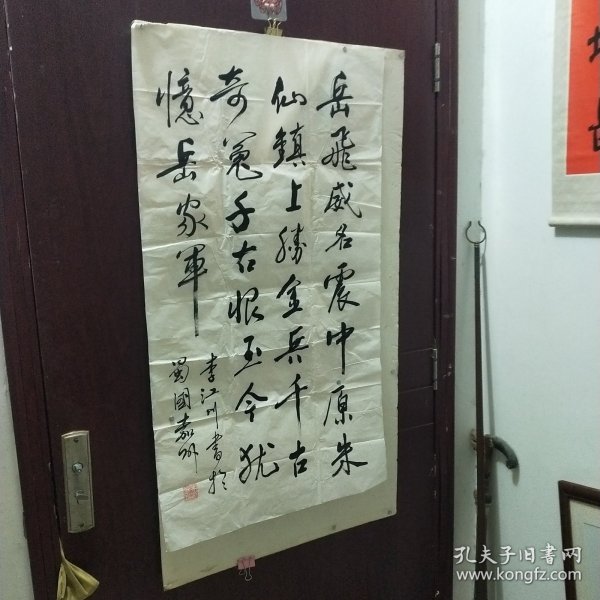 岳飛威名震中原朱
仙鎮上勝金兵千古
奇冤千古恨至今犹
憶岳家軍
李江川書於
蜀國嘉州
孔夫子旧书网
www.kongfz.com